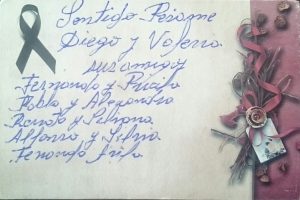 Sentido Pésame
Diego y Valeria
sus amigos
Fernando y
Pablo y Alejandro
Renato y
Alfonso y Silvia
Fernando